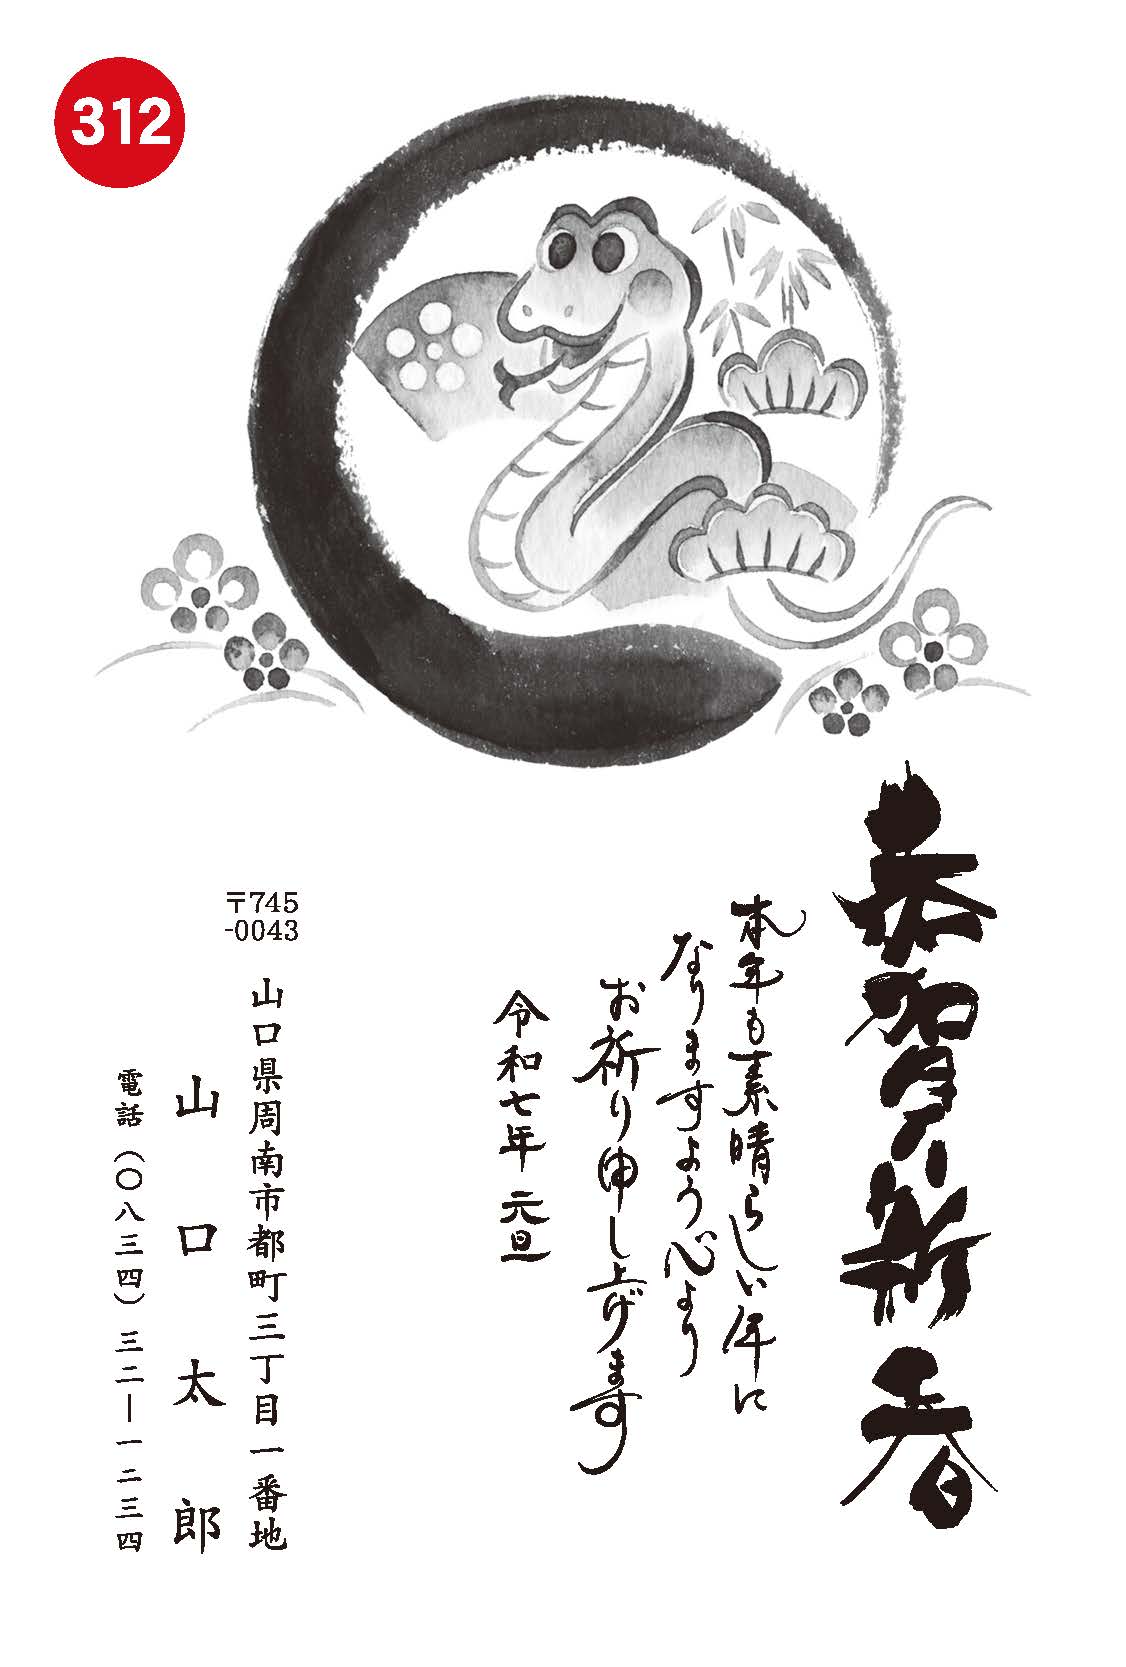 312
恭賀新春
本年も素晴らしい年に
なりますよう心より
お祈り申し上げます
令和七年 元旦
〒745
-0043
山口県周南市都町三丁目一番地
山口太郎
電話（〇八三四）三二―一二三四